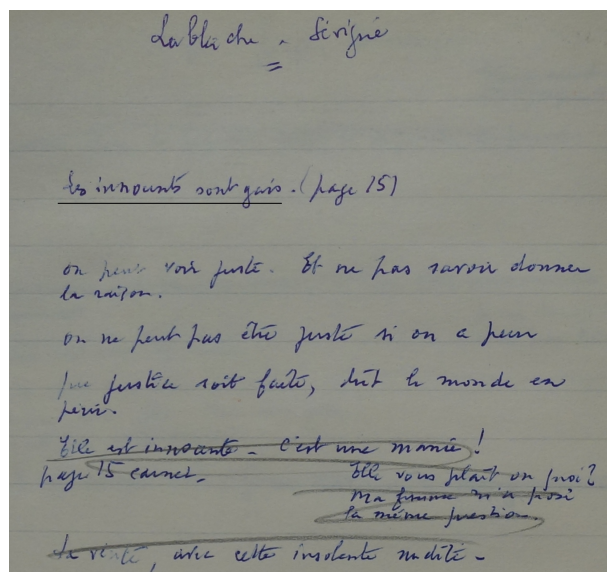 Lablache - Sévigné
Les innocents sont gais. (page 15)
on peut voir juste. Et ne pas savoir donner
la raison.
on ne peut pas être juste si on a peur
que justice soit faite, dût le monde en
périr.
Elle est innocente - C'est une manie !
page 15 carnet.
Elle vous plaît ou quoi ?
Ma femme m'a posé
la même question.
La vérité, avec cette insolente nudité -